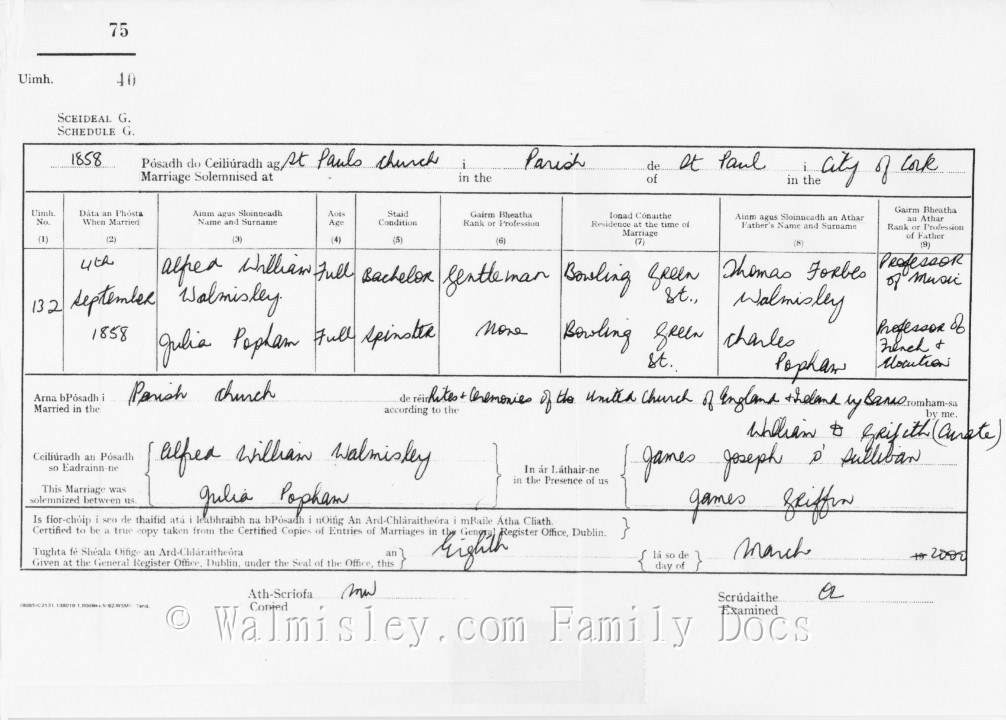 75
Uimh. 40
SCEIDEAL G.
SCHEDULE G.
1858 Pósadh do Ceiliúradh ag St Pauls Church i Parish de St Paul i City of Cork
Marriage Solemnised at in the of in the
Uimh. Dáta an Phósta Ainm agus Sloinneadh Aois Staid Gairm Bheatha Ionad Cónaithe Ainm agus Sloinneadh an Athar Gairm Bheatha
No. When Married Name and Surname Age Condition Rank or Profession Residence at the time of Father's Name and Surname an Athar
Marriage Rank or Profession
of Father
(1) (2) (3) (4) (5) (6) (7) (8) (9)
132 4th September 1858
Alfred William Walmisley Full Bachelor Gentleman Bowling Green St., Thomas Forbes Walmisley Professor of Music
Julia Popham Full Spinster None Bowling Green St., Charles Popham Professor of French & Elocution
Arna bPósadh i Parish Church de réir Rites & Ceremonies of the United Church of England & Ireland by Banns romham-sa
Married in the according to the by me.
William D Griffith (Curate)
Ceiliúradh an Pósadh Alfred William Walmisley In ár Láthair-ne James Joseph O'Sullivan
so Eadrainn-ne in the Presence of us
This Marriage was Julia Popham James Griffin
solemnized between us.
Is fíor-chóip í seo de thaifid atá i leabhraibh na bPósadh i nOifig An Ard-Chláraitheóra i mBaile Átha Cliath.
Certified to be a true copy taken from the Certified Copies of Entries of Marriages in the General Register Office, Dublin.
Tughta fé Shéala Oifige an Ard-Chláraitheóra an Eighth lá so de March 19 2002
Given at the General Register Office, Dublin, under the Seal of the Office, this day of
Ath-Scríofa mw Scrúdaithe
Copied Examined
© Walmisley.com Family Docs